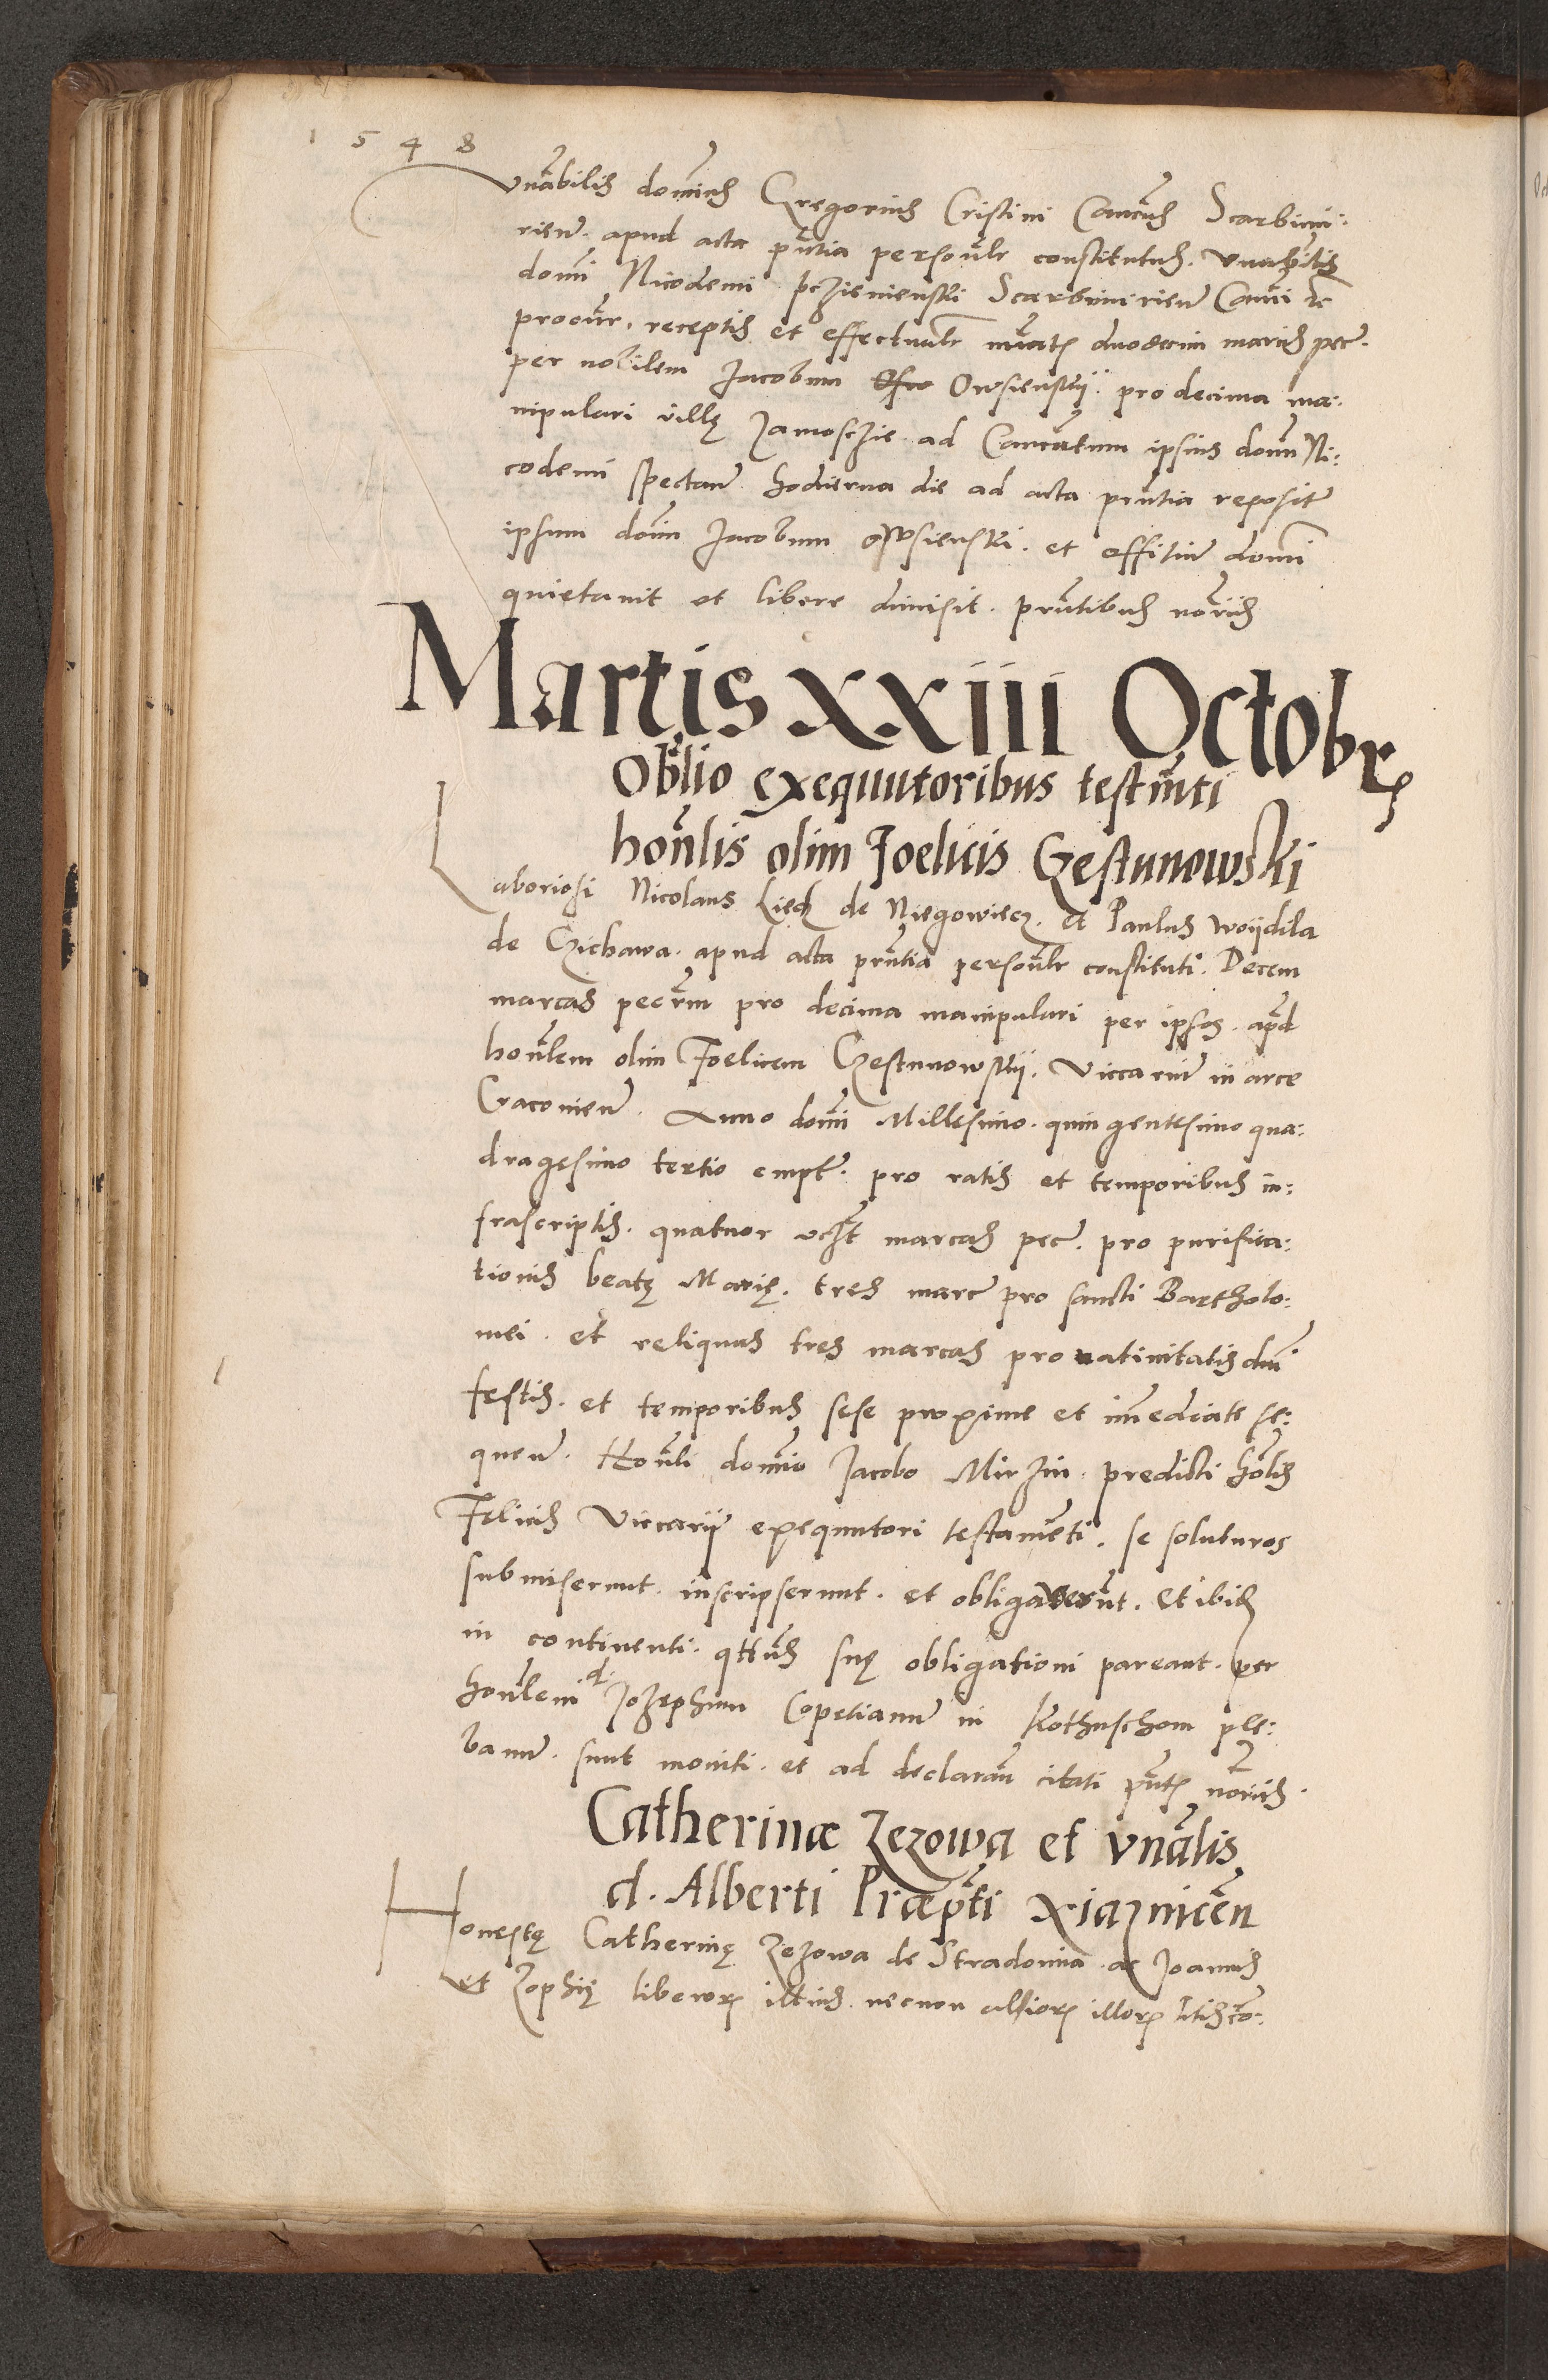 1548
Vnabilis dominus Gregorius Cristini Cancus Scarbimi:
rien. apud acta pntia personlr constitutus. Vnabilis
domi Nicodemi Scarbimirien Canci et
procur. receptis et effectualr nuatis duodecim marcis pec.
per nobilem Jacobum Owsienskij. pro decima ma:
nipulari villę Jamosczie ad Canratum ipsius domi Ni:
codemi spectan hodierna die ad acta prntia reposit
ipsum domi Jacobum owsienski. et offitiu domi
quietauit et libere dimisit. prntibus noriis
Martis xxiii Octobrs
Oblio exequutoribus testmti
honlis olim Foelicis Czestunowski
Laboriosi Nicolaus Liech de Niegowiecz. et Paulus Woijdila
de Czichawa. apud acta prntia personlr constituti. Decem
marcas pecrm pro decima manipulari per ipsos. apd
honlem olim Foelicem Czestunowskij. Viccariu in arce
Cracouien. Anno domi Millesimo. quingentesimo qua:
dragesimo tertio empt. pro ratis et temporibus in:
frascriptis. quatuor vclt marcas pec. pro purifica:
tionis beatę Marię. tres marc pro sancti Bartholo:
mei. et reliquas tres marcas pro natiuitatis dni
festis. et temporibus sese proxime et immediate se:
quen. Honli domino Jacobo Mirzin. predicti honlis
Felicis Viccarij exequutori testamenti. se soluturos
submiserunt. inscripserunt. et obligauerunt. Et ibidem
in continenti. qtenus suę obligationi pareant. per
honlem d. Jozephum Copetianu in Kothuschom ple:
banu. sunt moniti. et ad declaran citati pntes noriis.
Catherinæ Zezowa et vnalis
d. Alberti Præpti Xiaznicen
Honestę Catherinę Zezowa de Stradomia ac Joannis
et Zophię liberorum illius. necnon aliorum illorum litis con: